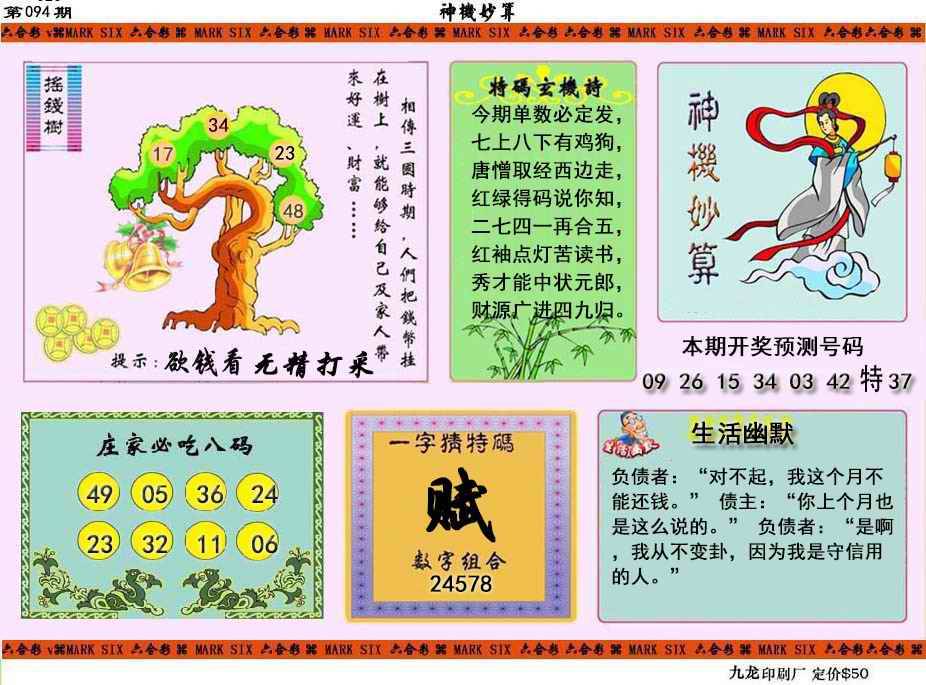 第094期
神機妙算
六合彩 MARK SIX 六合彩 MARK SIX 六合彩 MARK SIX 六合彩 MARK SIX 六合彩 MARK SIX 六合彩 MARK SIX 六合彩 六合彩
搖錢樹
相傳三國時期，人們把錢幣挂
在樹上，就能够給自己及家人帶
來好運、財富……
34
17
23
48
提示：欲钱看 无精打采
特碼玄機詩
今期单数必定发，
七上八下有鸡狗，
唐憎取经西边走，
红绿得码说你知，
二七四一再合五，
红袖点灯苦读书，
秀才能中状元郎，
财源广进四九归。
神機妙算
本期开奖预测号码
09 26 15 34 03 42 特 37
庄家必吃八码
49 05 36 24
23 32 11 06
一字猜特碼
赋
数字组合
24578
生活幽默
生活幽默
负债者：“对不起，我这个月不
能还钱。” 债主：“你上个月也
是这么说的。” 负债者：“是啊
，我从不变卦，因为我是守信用
的人。”
六合彩 MARK SIX 六合彩 MARK SIX 六合彩 MARK SIX 六合彩 MARK SIX 六合彩 MARK SIX 六合彩 MARK SIX 六合彩 六合彩
九龙印刷厂 定价$50